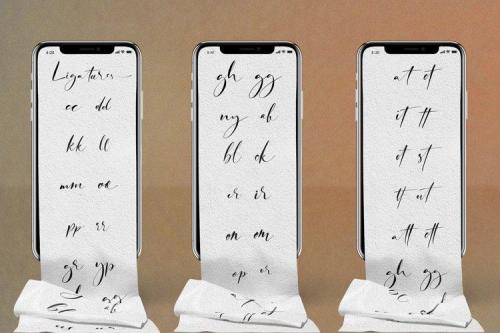 Ligatures
cc dd
kk ll
mm od
pp rr
gr yp
gh gg
ny ab
bl ck
er ir
on om
op er
at et
it tt
ot st
tt ut
att ott
gh gg